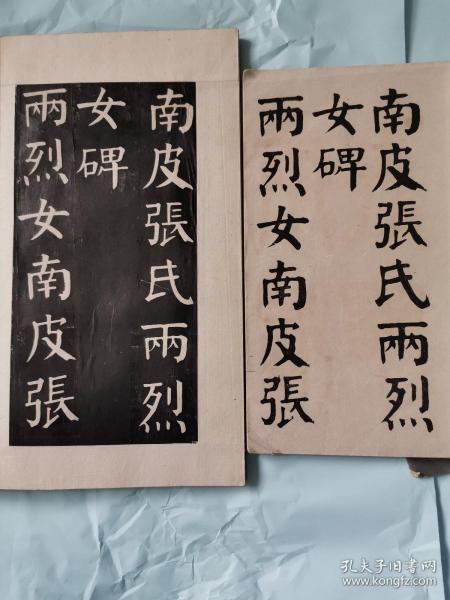 南皮張氏兩烈
女碑
兩烈女南皮張
南皮張氏兩烈
女碑
兩烈女南皮張
孔夫子旧书网
www.kongfz.com